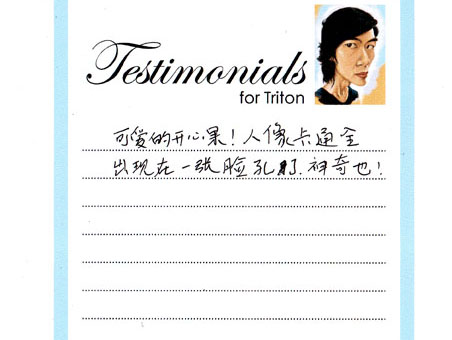 Testimonials
for Triton
可爱的开心果！人像卡通全
出现在一张脸孔了.神奇也！